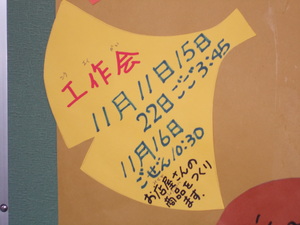 こうさくかい
工作会
11月11日15日
22日ごご3:45
11月16日
ごぜん10:30
お店屋さんの
商品をつくり
ます